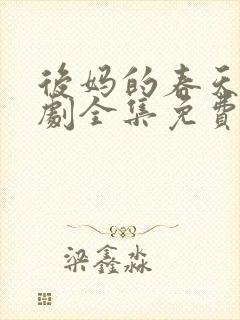 後妈的春天
劇全集免費
梁鑫淼